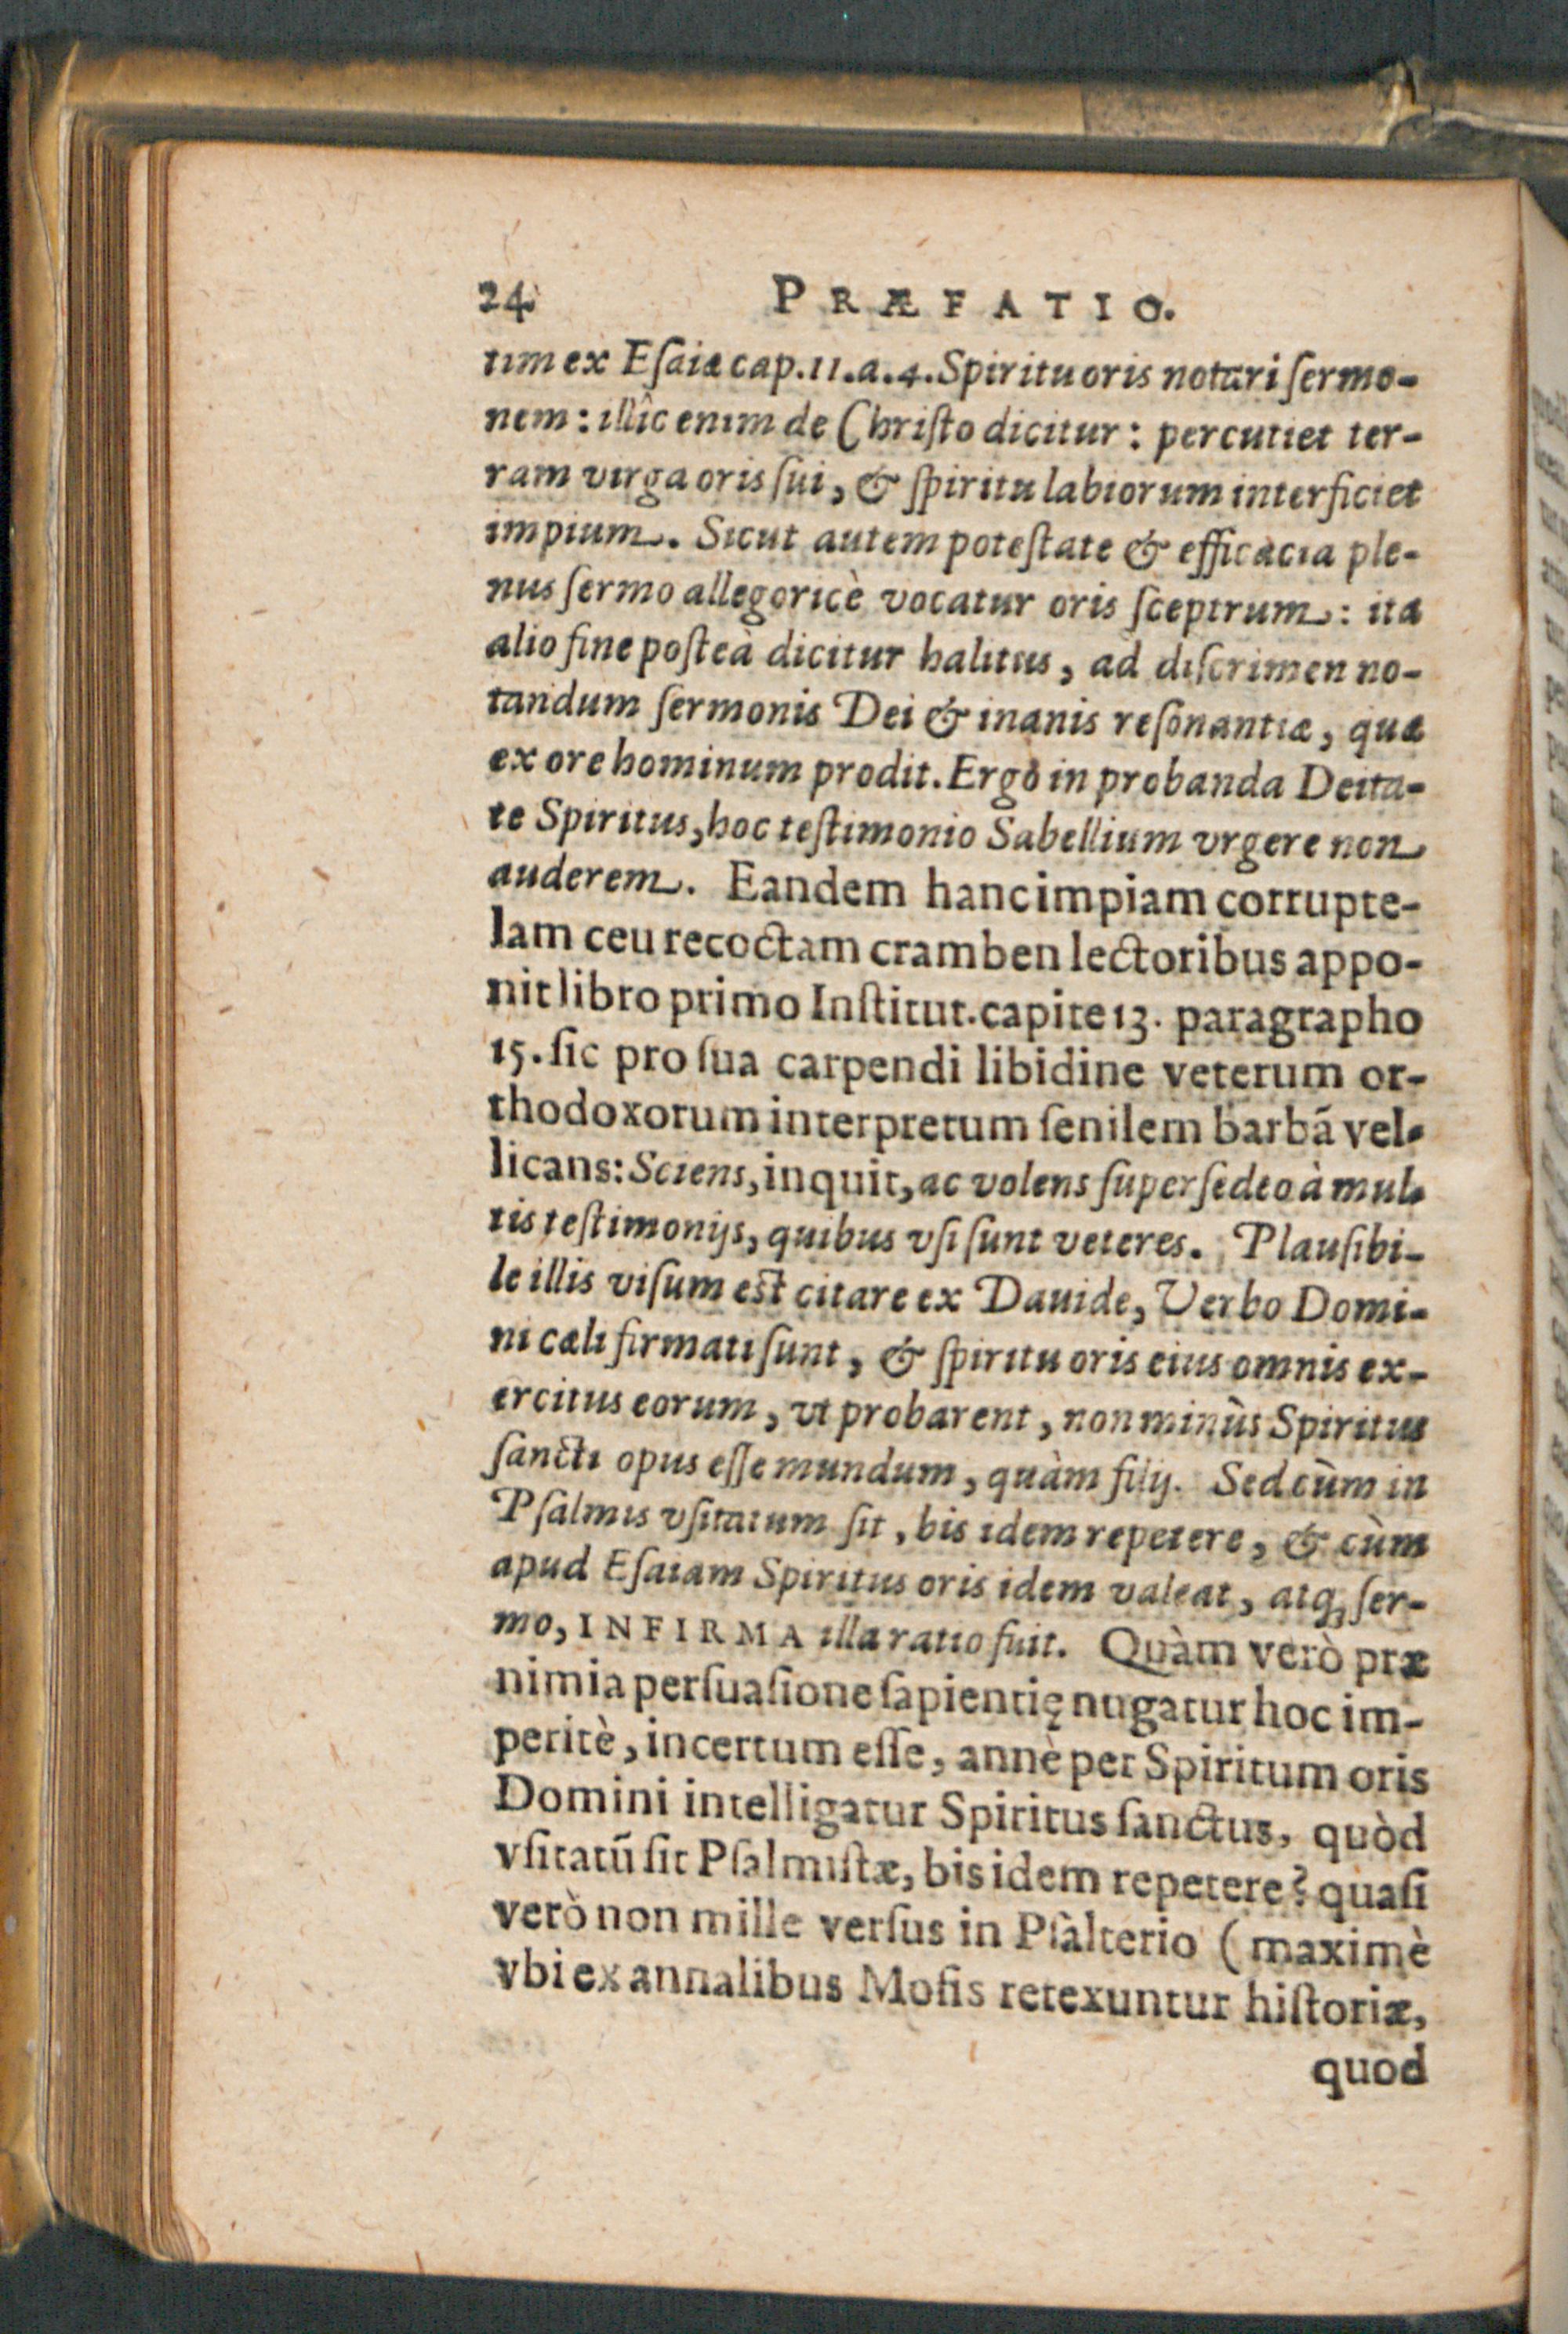 24 PRÆFATIO.
tim ex Eſaiæ cap. 11. a. 4. Spiritu oris notari ſermo-
nem: illîc enim de Chriſto dicitur: percutiet ter-
ram virga oris ſui, & ſpiritu labiorum interficiet
impium. Sicut autem poteſtate & efficacia ple-
nus ſermo allegoricè vocatur oris ſceptrum: ita
alio fine poſteà dicitur halitus, ad diſcrimen no-
tandum ſermonis Dei & inanis reſonantiæ, quæ
ex ore hominum prodit. Ergò in probanda Deita-
te Spiritus, hoc teſtimonio Sabellium vrgere non
auderem. Eandem hanc impiam corrupte-
lam ceu recoctam cramben lectoribus appo-
nit libro primo Inſtitut. capite 13. paragrapho
15. ſic pro ſua carpendi libidine veterum or-
thodoxorum interpretum ſenilem barbã vel-
licans: Sciens, inquit, ac volens ſuperſedeo à mul-
tis teſtimonijs, quibus vſi ſunt veteres. Plauſibi-
le illis viſum eſt citare ex Dauide, Verbo Domi-
ni cæli firmati ſunt, & ſpiritu oris eius omnis ex-
ercitus eorum, vt probarent, non minùs Spiritus
ſancti opus eſſe mundum, quàm filij. Sed cùm in
Pſalmis vſitatum ſit, bis idem repetere, & cùm
apud Eſaiam Spiritus oris idem valeat, atq; ſer-
mo, INFIRMA illa ratio fuit. Quàm verò præ
nimia perſuaſione ſapientię nugatur hoc im-
peritè, incertum eſſe, annè per Spiritum oris
Domini intelligatur Spiritus ſanctus, quòd
vſitatũ ſit Pſalmiſtæ, bis idem repetere? quaſi
verò non mille verſus in Pſàlterio (maximè
vbi ex annalibus Moſis retexuntur hiſtoriæ,
quod